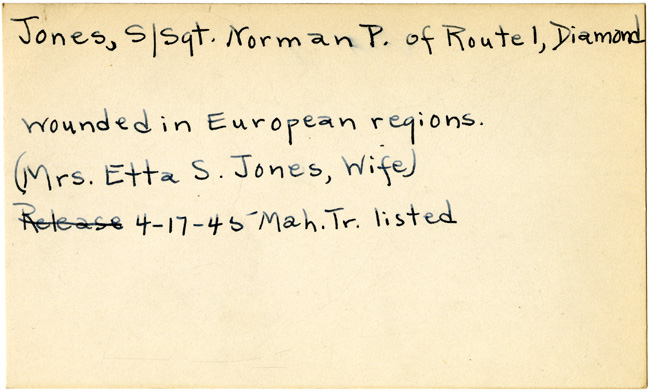 Jones, S/Sgt. Norman P. of Route 1, Diamond
wounded in European regions.
(Mrs. Etta S. Jones, Wife)
Release 4-17-45 Mah. Tr. listed